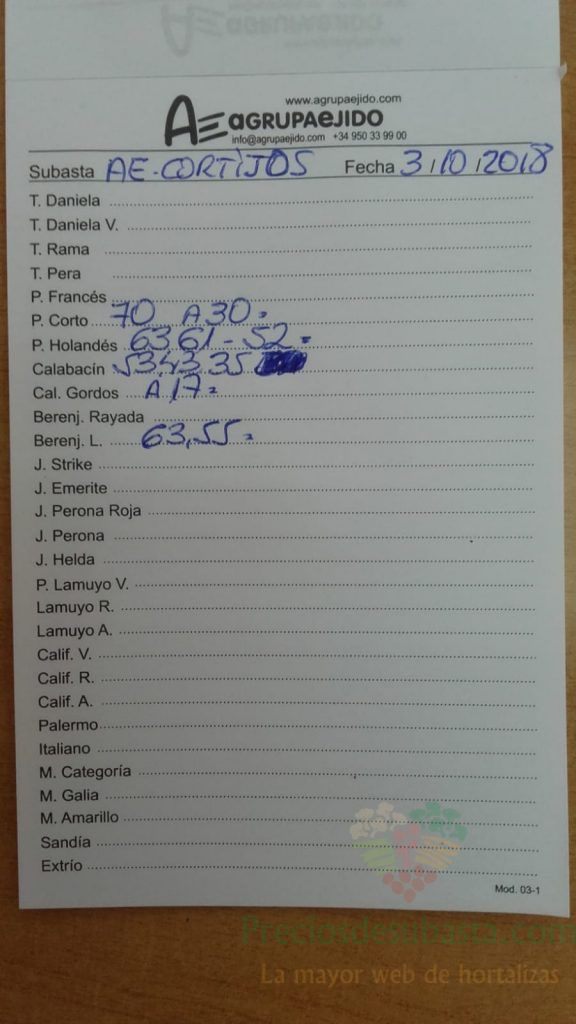 www.agrupaejido.com
AE AGRUPAEJIDO
info@agrupaejido.com +34 950 33 99 00
Subasta AE-CORTIJOS Fecha 3/10/2018
T. Daniela
T. Daniela V.
T. Rama
T. Pera
P. Francés
P. Corto 70 A 30
P. Holandés 63,61-52
Calabacín 53,43,35
Cal. Gordos A 17
Berenj. Rayada
Berenj. L. 63,55
J. Strike
J. Emerite
J. Perona Roja
J. Perona
J. Helda
P. Lamuyo V.
Lamuyo R.
Lamuyo A.
Calif. V.
Calif. R.
Calif. A.
Palermo
Italiano
M. Categoría
M. Galia
M. Amarillo
Sandía
Extrío
Mod. 03-1
Preciosdesubasta.com
La mayor web de hortalizas